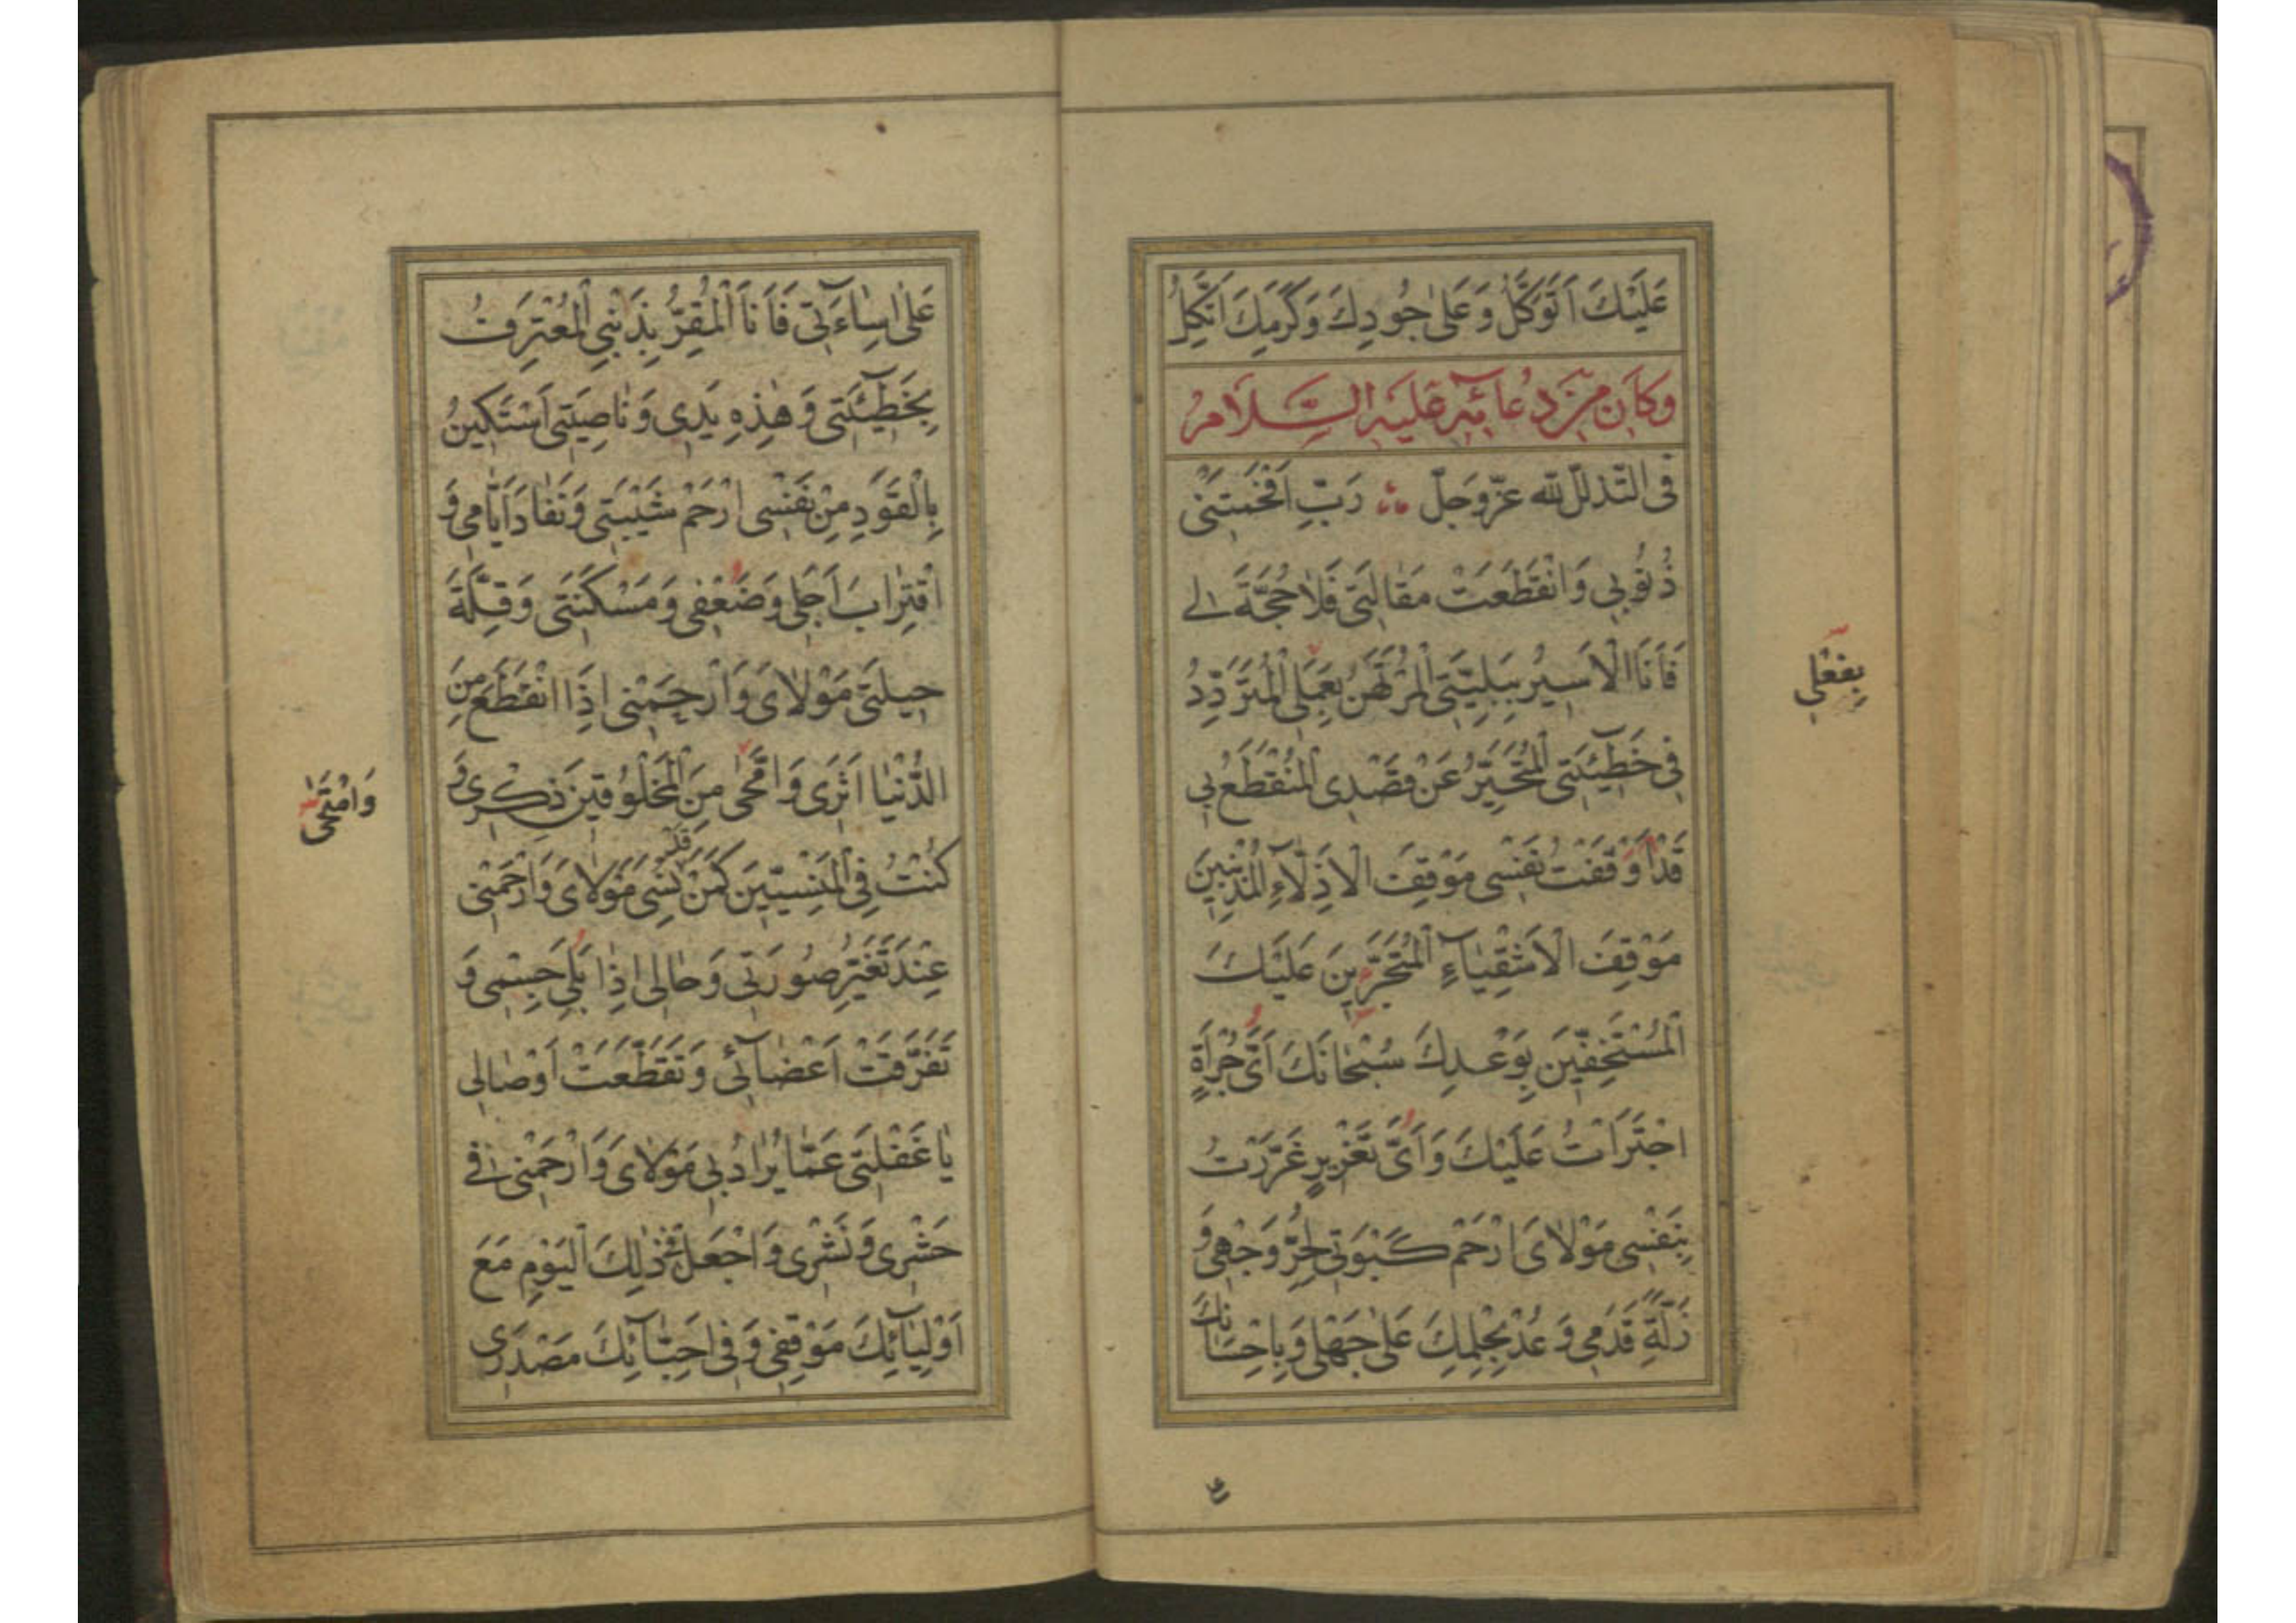 عَلَيْكَ اَتَوَكَّلُ وَعَلٰى جُودِكَ وَكَرَمِكَ اَتَّكِلُ
وَكَانَ مِنْ دُعَائِهِ عَلَيْهِ السَّلَامُ
فِى التَّذَلُّلِ لِلّٰهِ عَزَّ وَجَلَّ رَبِّ اَفْحَمَتْنى
ذُنُوبى وَانْقَطَعَتْ مَقَالَتى فَلَا حُجَّةَ لى
فَاَنَا الْاَسيرُ بِبَلِيَّتِى الْمُرْتَهَنُ بِعَمَلِى الْمُتَرَدِّدُ
فى خَطيئَتِى الْمُتَحَيِّرُ عَنْ قَصْدِى الْمُنْقَطَعُ بى
قَدْ اَوْقَفْتُ نَفْسى مَوْقِفَ الْاَذِلَّاءِ الْمُذْنِبينَ
مَوْقِفَ الْاَشْقِيَاءِ الْمُتَجَرِّينَ عَلَيْكَ
الْمُسْتَخِفّينَ بِوَعْدِكَ سُبْحَانَكَ اَىَّ جُرْأَةٍ
اجْتَرَأْتُ عَلَيْكَ وَاَىَّ تَغْريرٍ غَرَّرْتُ
بِنَفْسى مَوْلَاىَ ارْحَمْ كَبْوَتى لِحُرِّ وَجْهى وَ
زَلَّةِ قَدَمى وَعُدْ بِحِلْمِكَ عَلٰى جَهْلى وَبِاِحْسَانِكَ
بِفِعْلى
عَلٰى اِسَاءَتى فَاَنَا الْمُقِرُّ بِذَنْبِى الْمُعْتَرِفُ
بِخَطيئَتى وَهٰذِهِ يَدى وَنَاصِيَتى اَسْتَكينُ
بِالْقَوَدِ مِنْ نَفْسى ارْحَمْ شَيْبَتى وَنَفَادَ اَيَّامى وَ
اقْتِرَابَ اَجَلى وَضَعْفى وَمَسْكَنَتى وَقِلَّةَ
حيلَتى مَوْلَاىَ وَارْحَمْنى اِذَا انْقَطَعَ مِنَ
الدُّنْيَا اَثَرى وَامَّحٰى مِنَ الْمَخْلُوقينَ ذِكْرى وَ
كُنْتُ فِى الْمَنْسِيّينَ كَمَنْ قَدْ نُسِىَ مَوْلَاىَ وَارْحَمْنى
عِنْدَ تَغَيُّرِ صُورَتى وَحَالى اِذَا بَلِىَ جِسْمى وَ
تَفَرَّقَتْ اَعْضَائى وَتَقَطَّعَتْ اَوْصَالى
يَا غَفْلَتى عَمَّا يُرَادُ بى مَوْلَاىَ وَارْحَمْنى فى
حَشْرى وَنَشْرى وَاجْعَلْ فى ذٰلِكَ الْيَوْمِ مَعَ
اَوْلِيَائِكَ مَوْقِفى وَفى اَحِبَّائِكَ مَصْدَرى
وَامْتَحٰى